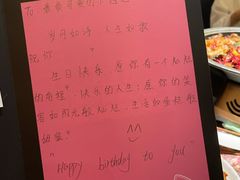 To 最最可爱的小
岁月如诗 人生如歌
祝你
生日快乐 愿你有一个灿烂
的前程 快乐的人生；愿你的笑
容如阳光般灿烂 生活如蜜糖般
甜蜜
"Happy birthday to you"